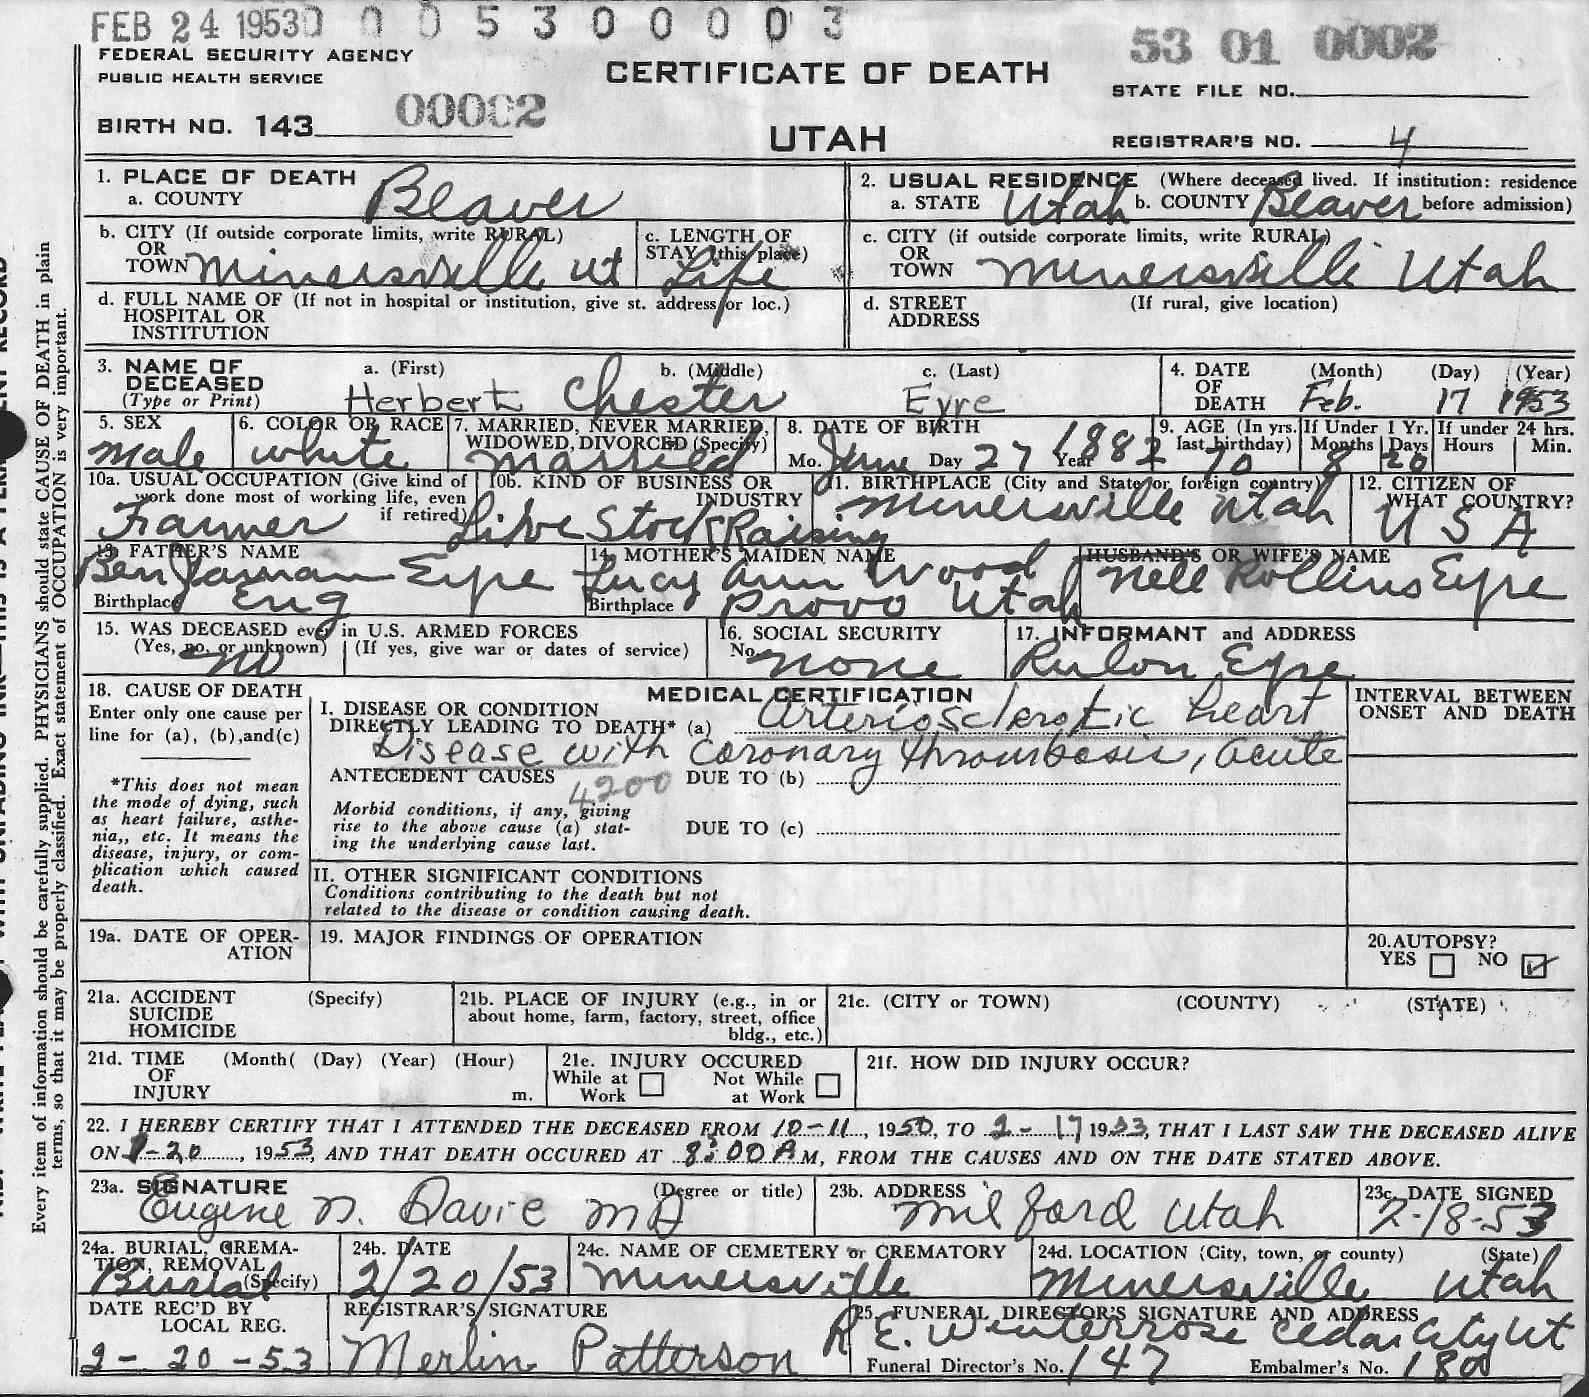 FEB 24 1953 0 0 0 5 3 0 0 0 0 3
53 01 0002
FEDERAL SECURITY AGENCY
PUBLIC HEALTH SERVICE
CERTIFICATE OF DEATH
STATE FILE NO.
BIRTH NO. 143 00002
UTAH
REGISTRAR'S NO. 4
1. PLACE OF DEATH
a. COUNTY Beaver
2. USUAL RESIDENCE (Where deceased lived. If institution: residence
a. STATE Utah b. COUNTY Beaver before admission)
b. CITY (If outside corporate limits, write RURAL)
OR
TOWN Minersville Ut
c. LENGTH OF
STAY (this place)
Life
c. CITY (if outside corporate limits, write RURAL)
OR
TOWN Minersville Utah
d. FULL NAME OF (If not in hospital or institution, give st. address or loc.)
HOSPITAL OR
INSTITUTION
d. STREET (If rural, give location)
ADDRESS
3. NAME OF DECEASED (Type or Print)
a. (First) b. (Middle) c. (Last)
Herbert Chester Eyre
4. DATE OF DEATH (Month) (Day) (Year)
Feb. 17 1953
5. SEX
Male
6. COLOR OR RACE
White
7. MARRIED, NEVER MARRIED,
WIDOWED, DIVORCED (Specify)
Married
8. DATE OF BIRTH
Mo. June Day 27 Year 1882
9. AGE (In yrs. last birthday) 70
If Under 1 Yr. Months 8 Days 20
If under 24 hrs. Hours Min.
10a. USUAL OCCUPATION (Give kind of
work done most of working life, even
if retired)
Farmer
10b. KIND OF BUSINESS OR
INDUSTRY
Live Stock Raising
11. BIRTHPLACE (City and State or foreign country)
Minersville Utah
12. CITIZEN OF
WHAT COUNTRY?
U S A
13. FATHER'S NAME
Benjaman Eyre
Birthplace Eng
14. MOTHER'S MAIDEN NAME
Lucy Ann Wood
Birthplace Provo Utah
HUSBAND'S OR WIFE'S NAME
Nell Rollins Eyre
15. WAS DECEASED ever in U.S. ARMED FORCES
(Yes, no, or unknown) (If yes, give war or dates of service)
no
16. SOCIAL SECURITY
No. none
17. INFORMANT and ADDRESS
Rulon Eyre
18. CAUSE OF DEATH
Enter only one cause per
line for (a), (b), and (c)
*This does not mean
the mode of dying, such
as heart failure, asthe-
nia,, etc. It means the
disease, injury, or com-
plication which caused
death.
MEDICAL CERTIFICATION
I. DISEASE OR CONDITION
DIRECTLY LEADING TO DEATH* (a) Arteriosclerotic heart
Disease with coronary thrombosis, acute
ANTECEDENT CAUSES 4200 DUE TO (b)
Morbid conditions, if any, giving
rise to the above cause (a) stat-
ing the underlying cause last.
DUE TO (c)
INTERVAL BETWEEN
ONSET AND DEATH
II. OTHER SIGNIFICANT CONDITIONS
Conditions contributing to the death but not
related to the disease or condition causing death.
19a. DATE OF OPER-
ATION
19. MAJOR FINDINGS OF OPERATION
20. AUTOPSY?
YES NO
21a. ACCIDENT (Specify)
SUICIDE
HOMICIDE
21b. PLACE OF INJURY (e.g., in or
about home, farm, factory, street, office
bldg., etc.)
21c. (CITY or TOWN) (COUNTY) (STATE)
21d. TIME (Month( (Day) (Year) (Hour)
OF
INJURY m.
21e. INJURY OCCURED
While at Work Not While at Work
21f. HOW DID INJURY OCCUR?
22. I HEREBY CERTIFY THAT I ATTENDED THE DECEASED FROM 10-11, 1950, TO 2-17 1953, THAT I LAST SAW THE DECEASED ALIVE
ON 1-20, 1953, AND THAT DEATH OCCURED AT 8:00 A M, FROM THE CAUSES AND ON THE DATE STATED ABOVE.
23a. SIGNATURE (Degree or title)
Eugene N. Davie MD
23b. ADDRESS
Milford Utah
23c. DATE SIGNED
2-18-53
24a. BURIAL, CREMA-
TION, REMOVAL
(Specify)
Burial
24b. DATE
2/20/53
24c. NAME OF CEMETERY or CREMATORY
Minersville
24d. LOCATION (City, town, or county) (State)
Minersville Utah
DATE REC'D BY
LOCAL REG.
2-20-53
REGISTRAR'S SIGNATURE
Merlin Patterson
25. FUNERAL DIRECTOR'S SIGNATURE AND ADDRESS
R E. Winterrose Cedar City Ut
Funeral Director's No. 147 Embalmer's No. 180
Every item of information should be carefully supplied. PHYSICIANS should state CAUSE OF DEATH in plain
terms, so that it may be properly classified. Exact statement of OCCUPATION is very important.